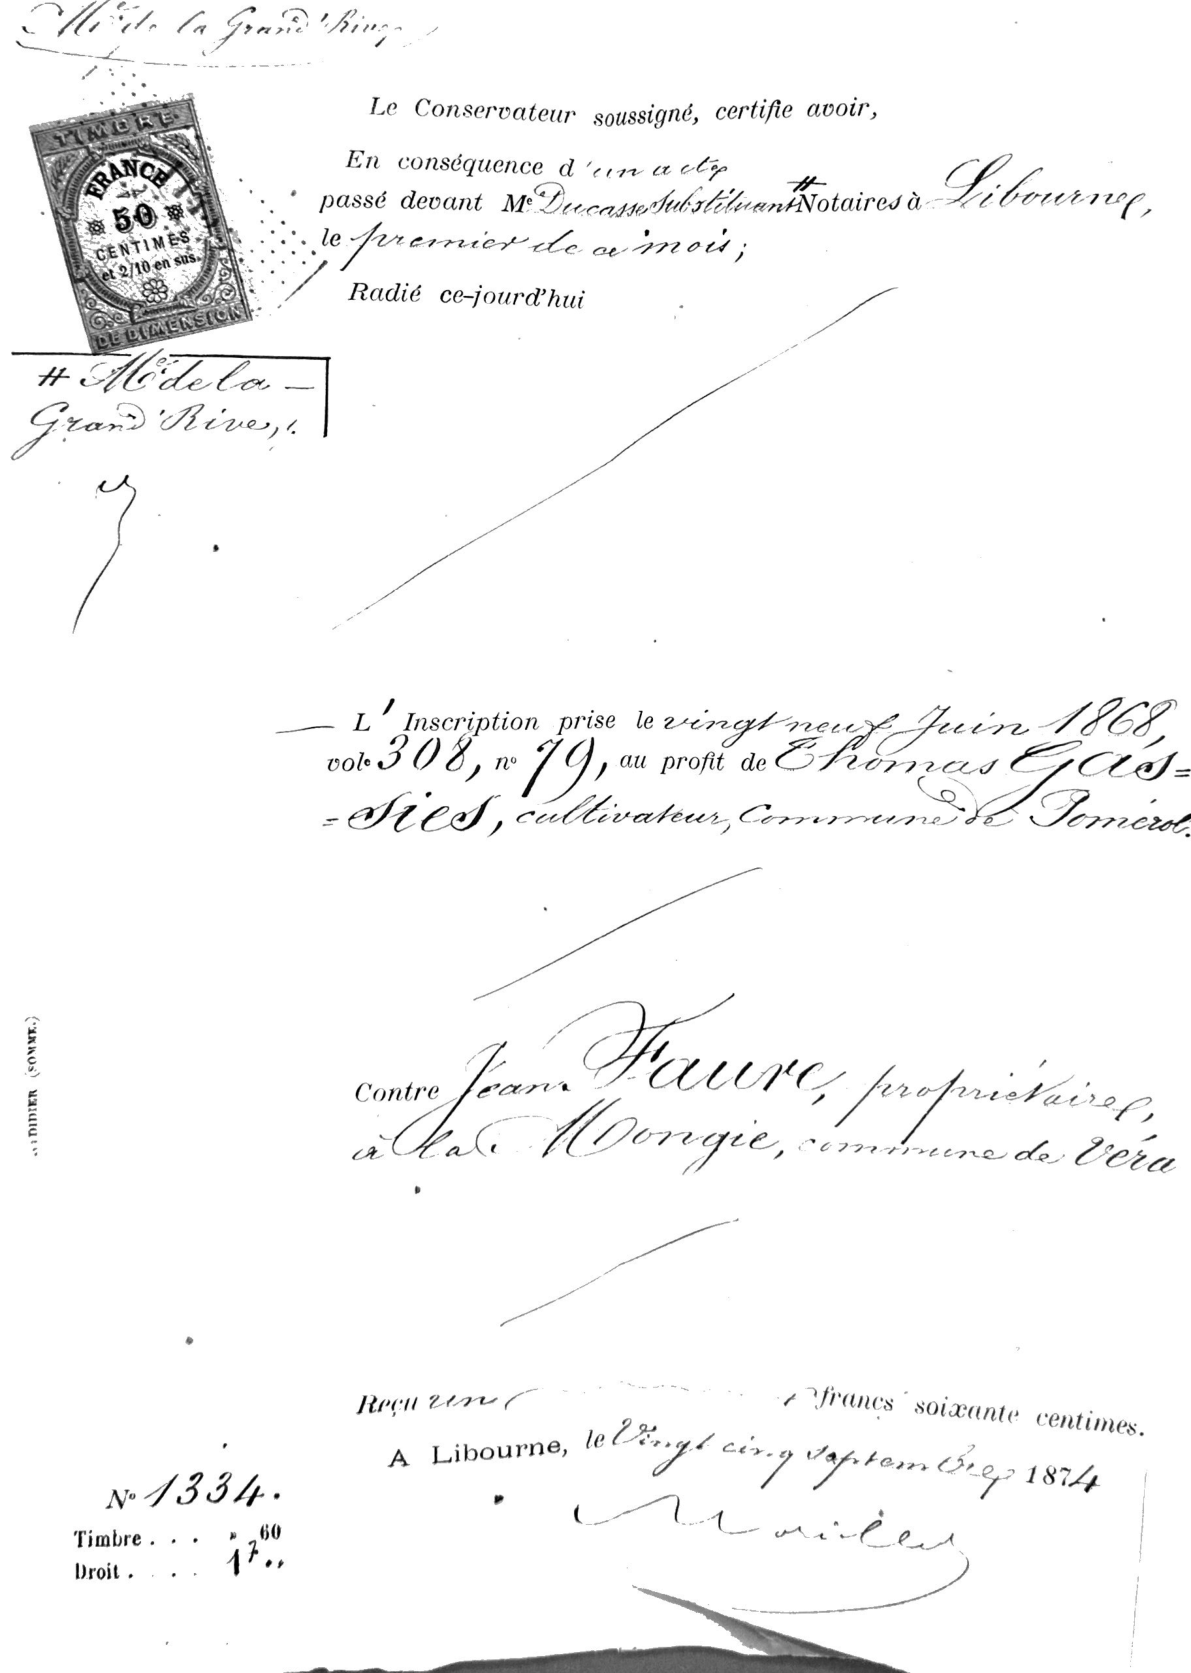 Me de la Grand'Rive
TIMBRE
FRANCE
50
CENTIMES
et 2/10 en sus.
DE DIMENSION
Le Conservateur soussigné, certifie avoir,
En conséquence d'un acte
passé devant Me Ducasse Substituant # Notaires à Libourne,
le premier de ce mois;
Radié ce-jourd'hui
# Me de la —
Grand'Rive,
— L' Inscription prise le vingt neuf Juin 1868,
vol. 308, no 79, au profit de Thomas Gas=
=sies, cultivateur, Commune de Pomérol.
Contre Jean Faure, propriétaire,
à la Mongie, commune de Véra
DIDIER (SOMME.)
Reçu un francs soixante centimes.
A Libourne, le Vingt cinq Septembre 1874
No 1334.
Timbre . . . » 60
Droit . . . . 1